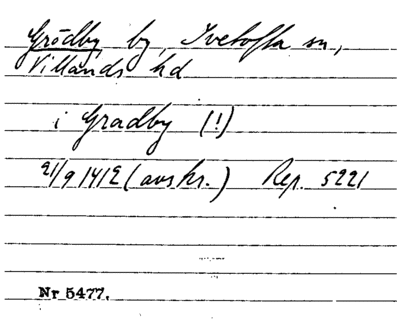 Grödby by, Ivetofta sn,
Villands hd
i Gradby (!)
21/9 1412 (avskr.) Rep. 5221
Nr 5477.